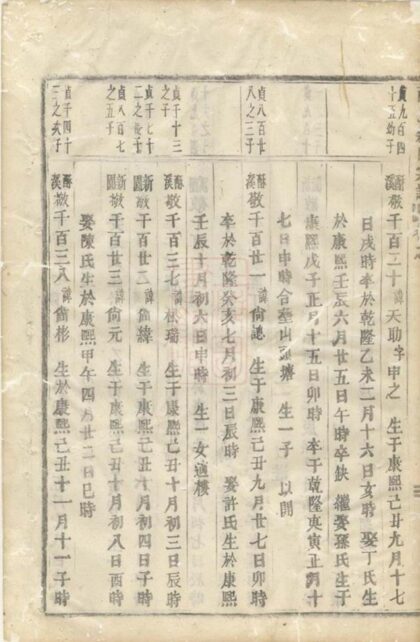 貞九百四
十五幼子
醕溪敬千百二十 諱天助字甲之 生于康熙己丑九月十七
日戌時卒於乾隆乙未二月十六日亥時 娶丁氏生
於康熙壬辰六月廿五日午時卒缺 繼娶孫氏生于
康熙戊子正月十五日卯時 卒于乾隆庚寅正月十
七日申時合塟山 生一子 以開
貞八百廿
八之三子
敬千百廿一 諱尙 生于康熙己丑九月廿七日卯時
卒於乾隆癸亥七月初三日辰時 娶許氏生於康熙
壬辰十月初六日申時 生一女適樓
貞千十三
之子
醕溪敬千百三七 諱松瑞 生于康熙己丑十月初三日辰時
貞千七十
二之
新園敬千百廿二 諱尙緯 生于康熙己丑十月初四日子時
貞八百七
之五子
新園敬千百廿三 諱尙元 生于康熙己丑十月初八日酉時
娶陳氏生於康熙甲午四月廿二日巳時
貞千四十
三之次子
醕溪敬千百三八 諱尙彬 生於康熙己丑十一月十一子時